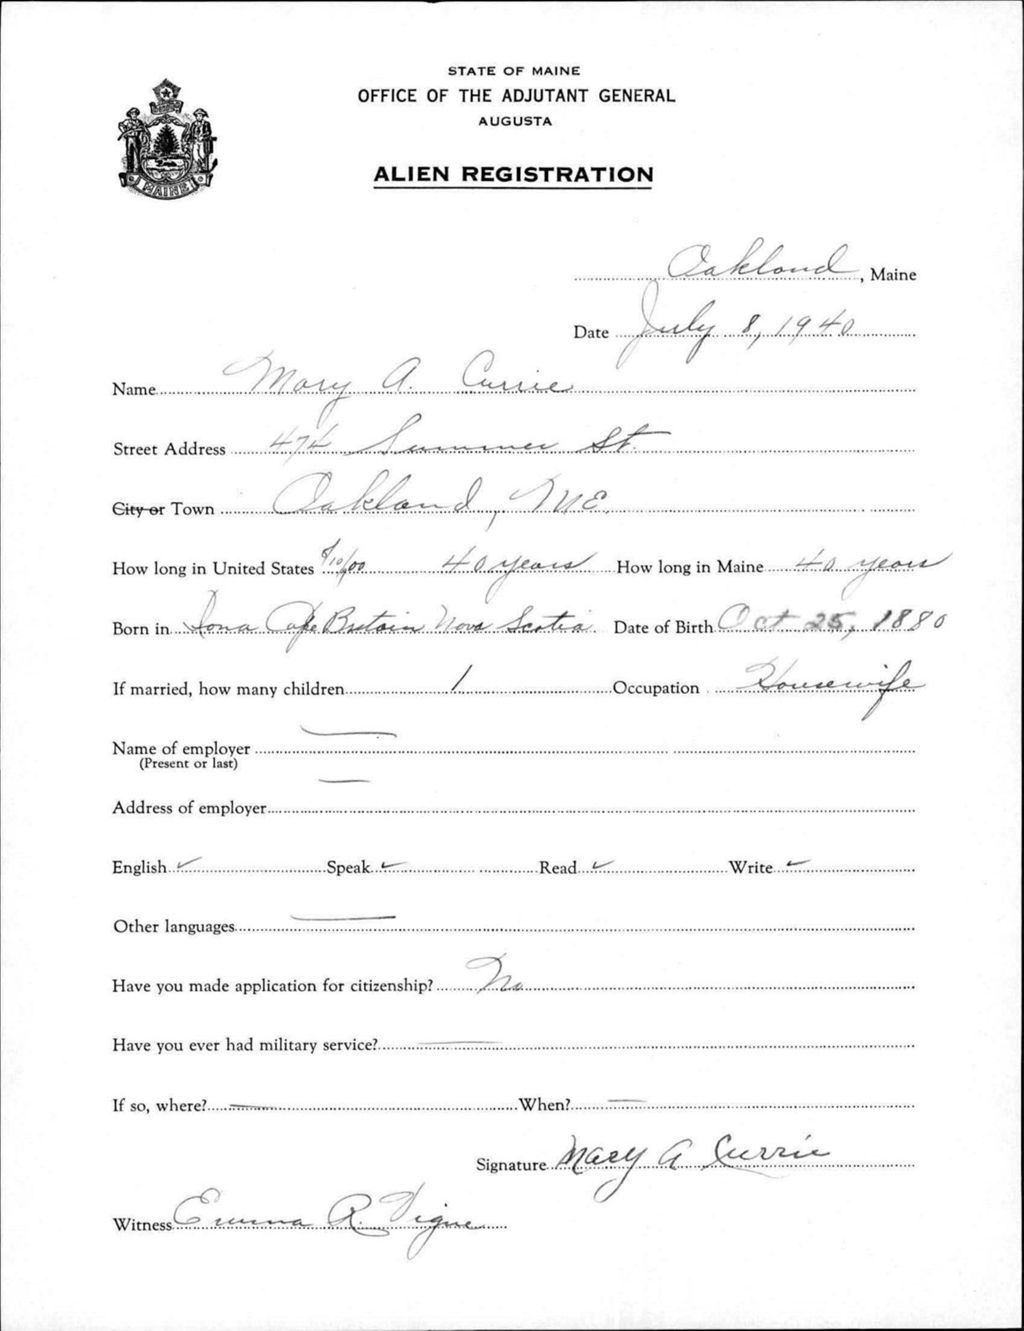 STATE OF MAINE
OFFICE OF THE ADJUTANT GENERAL
AUGUSTA
ALIEN REGISTRATION
MAINE
Oakland, Maine
Date July 8, 1940
Name Mary A. Currie
Street Address 474 Summer St.
City or Town Oakland, ME.
How long in United States 40 years How long in Maine 40 years
Born in Iona Cape Bretain Nova Scotia. Date of Birth Oct 25, 1880
If married, how many children 1 Occupation Housewife
Name of employer
(Present or last)
Address of employer
English ✓ Speak ✓ Read ✓ Write ✓
Other languages
Have you made application for citizenship? No
Have you ever had military service?
If so, where? When?
Signature Mary A Currie
Witness Emma R. Vigue